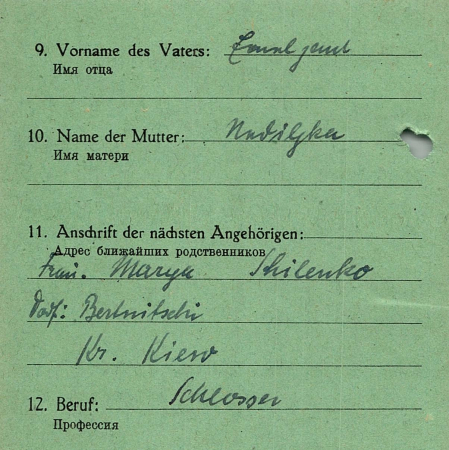 9. Vorname des Vaters:
Имя отца
10. Name der Mutter: Nediljka
Имя матери
11. Anschrift der nächsten Angehörigen:
Адрес ближайших родственников
Frau. Marya Shilenko
Dorf: Bertnitschi
Kr. Kiew
12. Beruf: Schlosser
Профессия